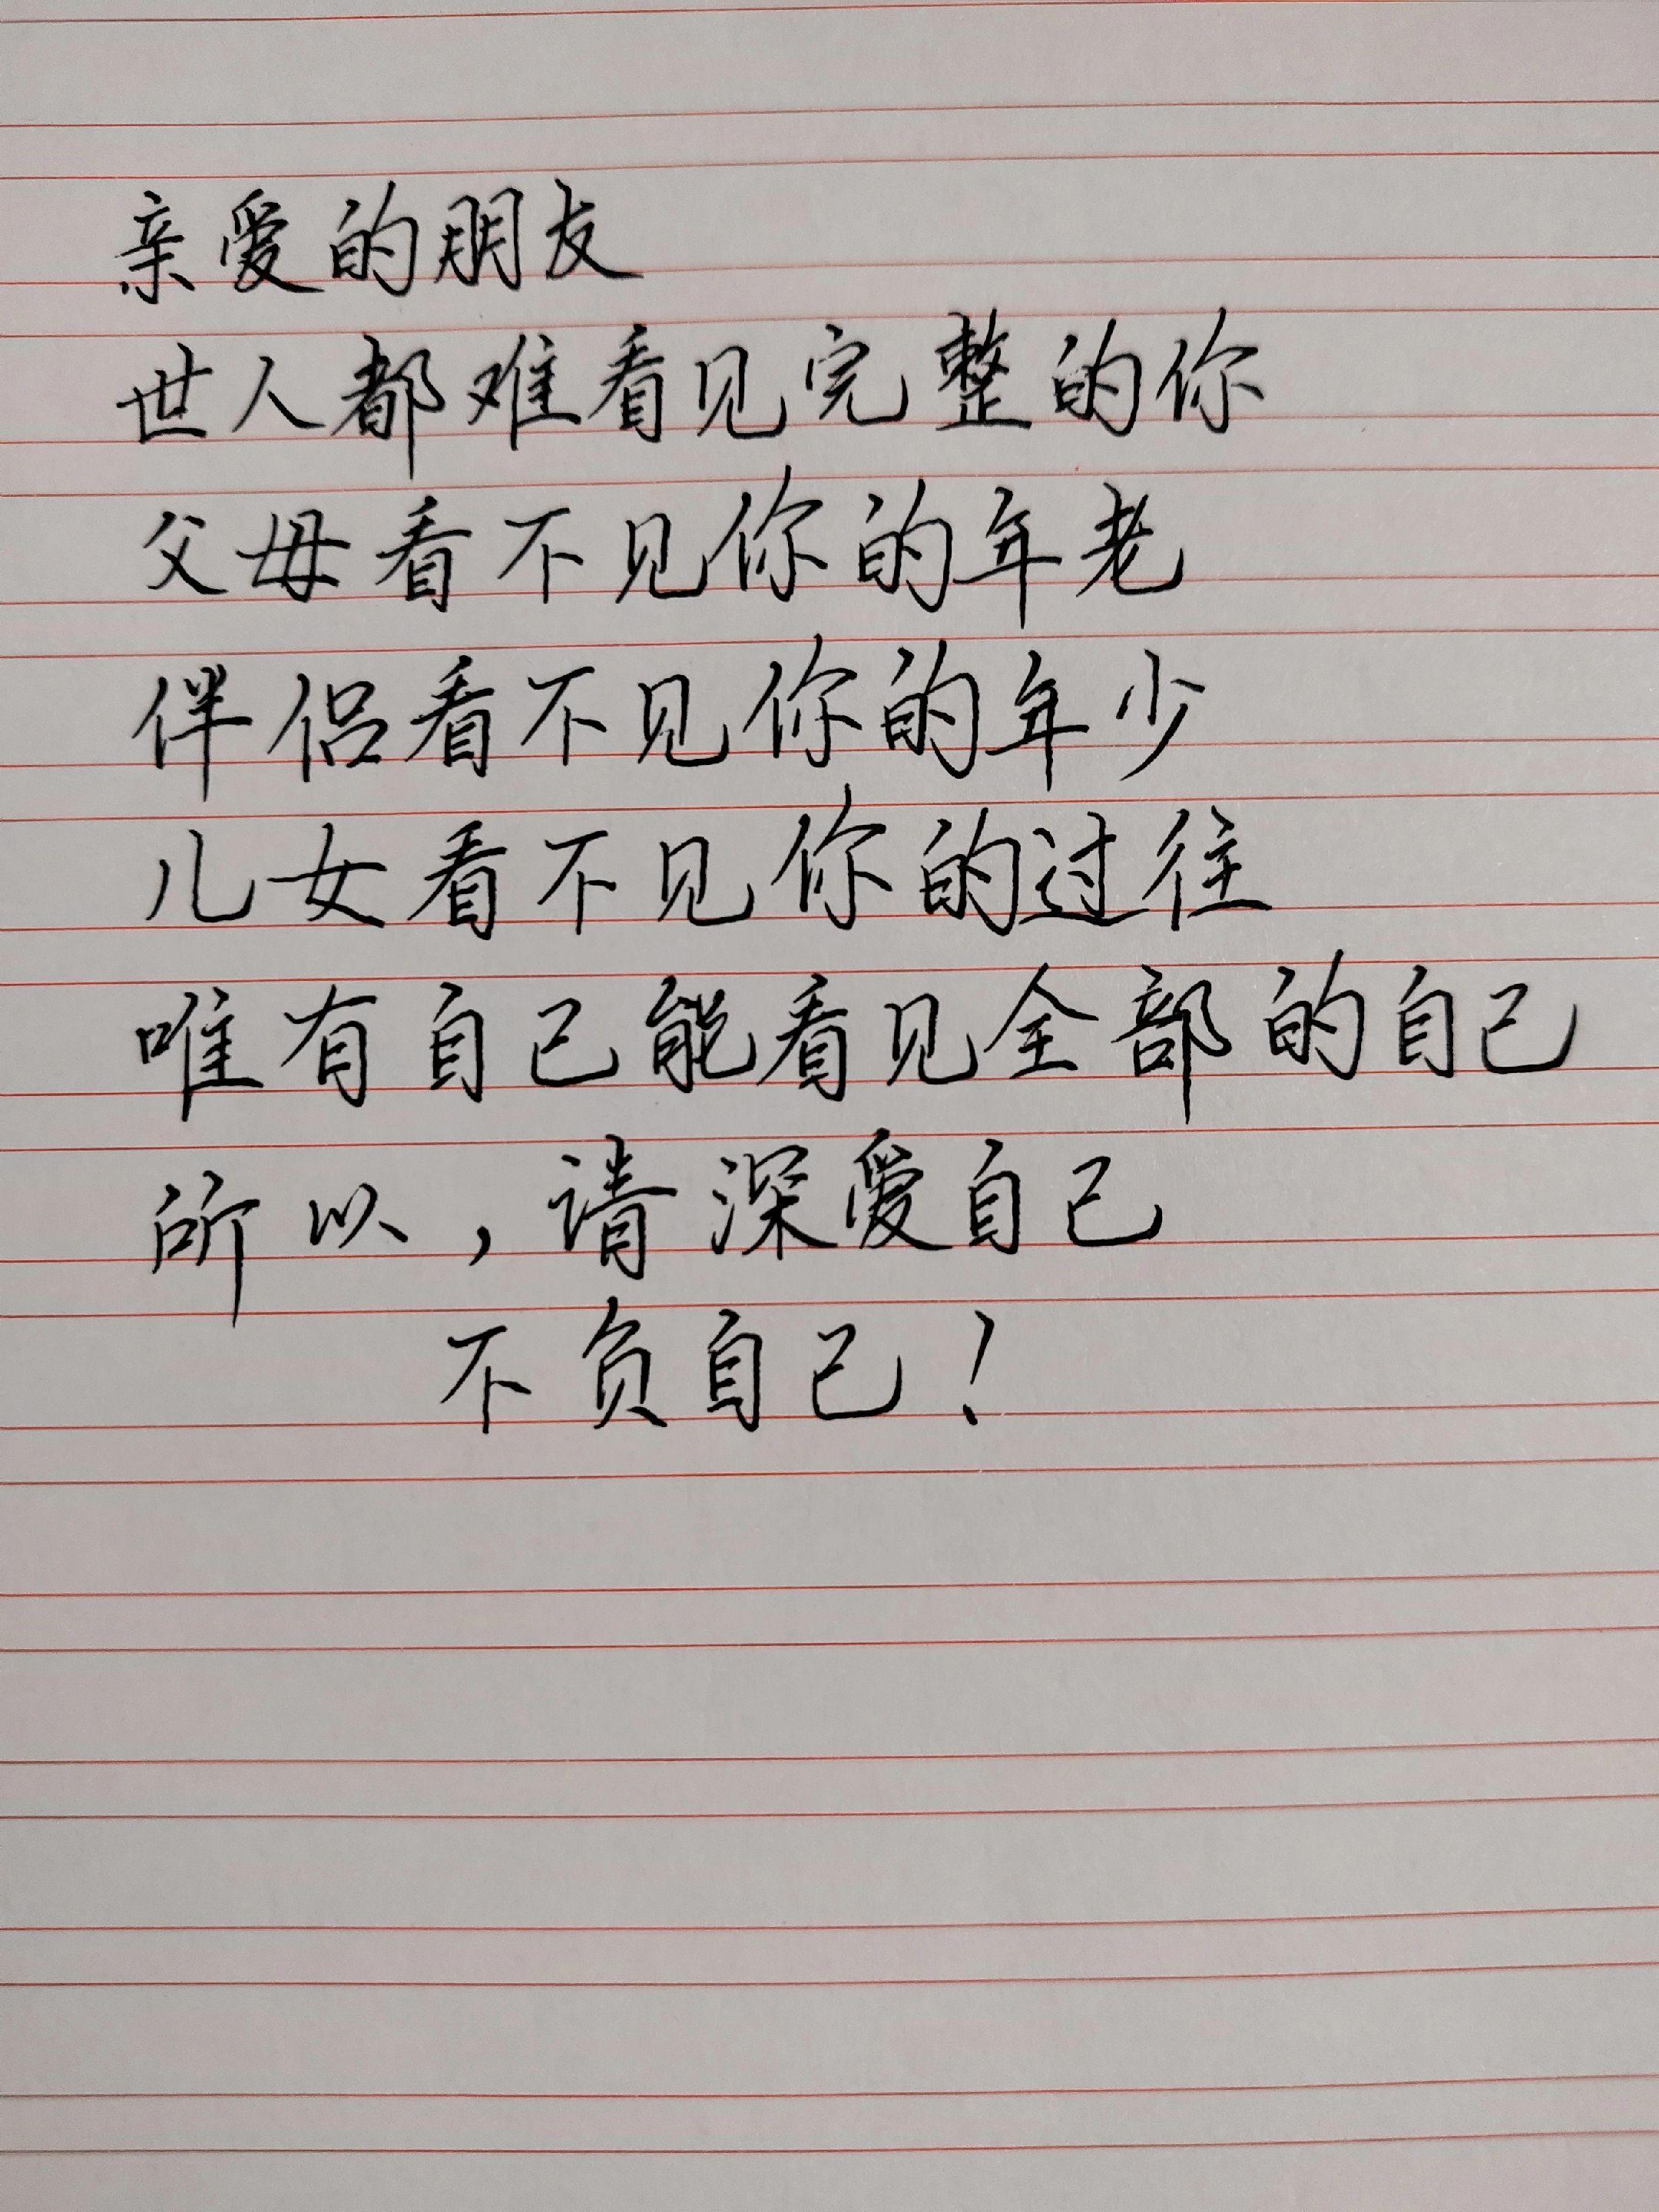 亲爱的朋友
世人都难看见完整的你
父母看不见你的年老
伴侣看不见你的年少
儿女看不见你的过往
唯有自己能看见全部的自己
所以，请深爱自己
不负自己！